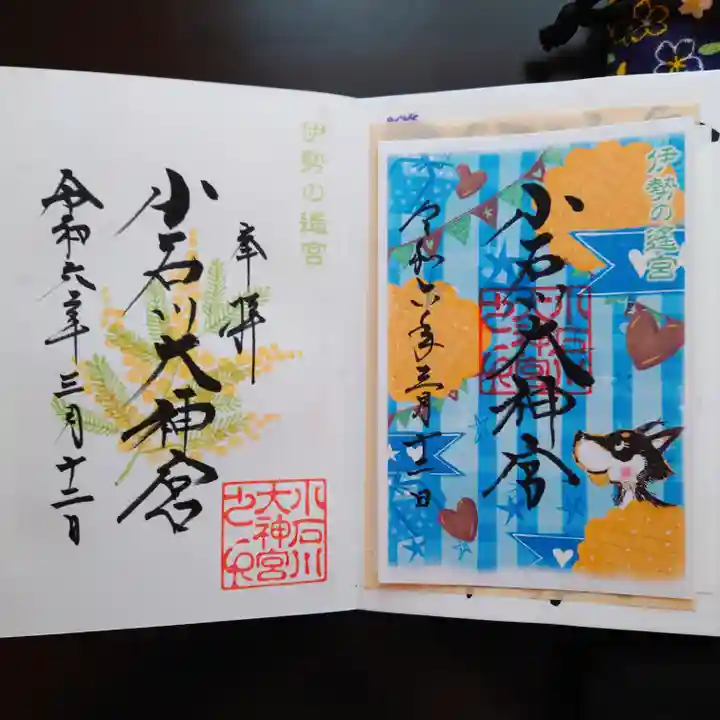 伊勢の遥宮
奉拝
小石川大神宮
令和六年三月十二日
小石川
大神宮
伊勢の遥宮
小石川大神宮
令和六年三月十二日
小石川
大神宮